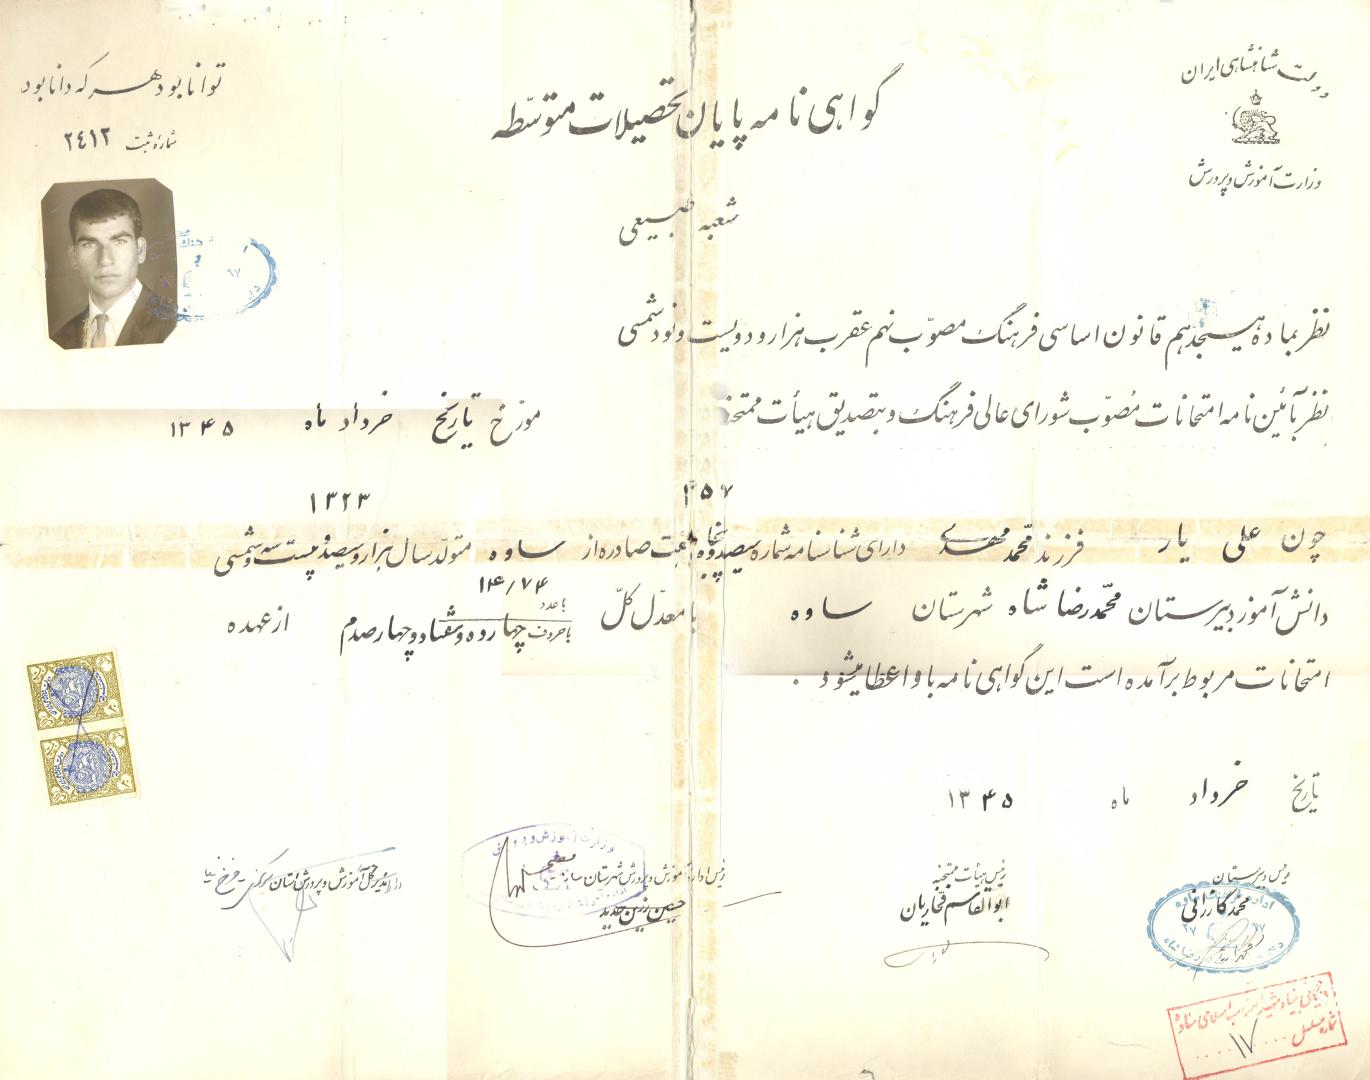 دولت شاهنشاهی ایران
وزارت آموزش و پرورش
توانا بود هر که دانا بود
شماره ثبت ۲۴۱۲
گواهی نامه پایان تحصیلات متوسّطه
شعبه طبیعی
نظر بماده هیجدهم قانون اساسی فرهنگ مصوّب نهم عقرب هزار و دویست و نود شمسی
نظر بآئین نامه امتحانات مُصوّب شورای عالی فرهنگ و بتصدیق هیأت ممتحنه مورّخ تاریخ خرداد ماه ۱۳۴۵
۳۵۷ ۱۳۲۳
چون علی یار فرزند محمّد مهدی دارای شناسنامه شماره سیصد و پنجاه و هفت صادره از ساوه متولّد سال هزار و سیصد و بیست و سه شمسی
دانش آموز دبیرستان محمّد رضا شاه شهرستان ساوه با معدّل کلّ با عدد ۱۴/۷۴ با حروف چهارده و هفتاد و چهار صدم از عهده
امتحانات مربوط برآمده است این گواهی نامه باو اعطا میشود .
تاریخ خرداد ماه ۱۳۴۵
رئیس دبیرستان
محمد گازرانی
رئیس هیأت ممتحنه
ابوالقاسم فخاریان
رئیس اداره آموزش و پرورش شهرستان ساوه
حسین زرین جدید
مدیر کل آموزش و پرورش استان مرکزی
وزارت آموزش و پرورش
شماره مسلسل ۱۷